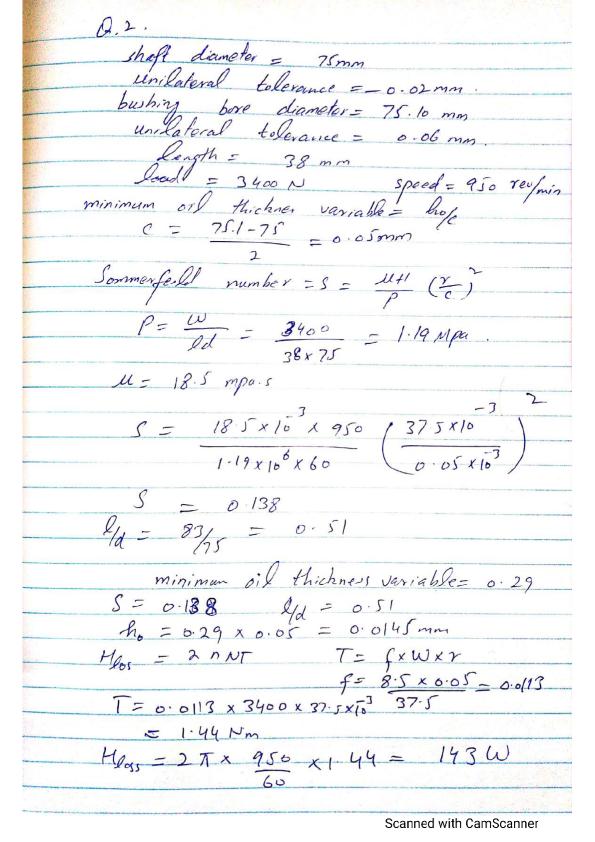 Q.2.
shaft diameter = 75mm
unilateral tolerance = - 0.02 mm.
bushing bore diameter = 75.10 mm
unilateral tolerance = 0.06 mm.
length = 38 mm
load = 3400 N speed = 950 rev/min
minimum oil thicknes variable = ho/c
c = 75.1-75 / 2 = 0.05mm
Sommerfeld number = S = μH/P (r/c)²
P = W/ld = 3400 / 38x75 = 1.19 Mpa.
μ = 18.5 mpa.s
S = 18.5 x 10⁻³ x 950 / 1.19 x 10⁶ x 60 (37.5 x10⁻³ / 0.05 x10⁻³)²
S = 0.138
l/d = 83/75 = 0.51
minimum oil thickness variable = 0.29
S = 0.138 l/d = 0.51
ho = 0.29 x 0.05 = 0.0145 mm
Hlos = 2 π NT T = f x W x r
f = 8.5 x 0.05 / 37.5 = 0.0113
T = 0.0113 x 3400 x 37.5 x10⁻³
= 1.44 Nm
Hloss = 2 π x 950/60 x 1.44 = 143 W
Scanned with CamScanner